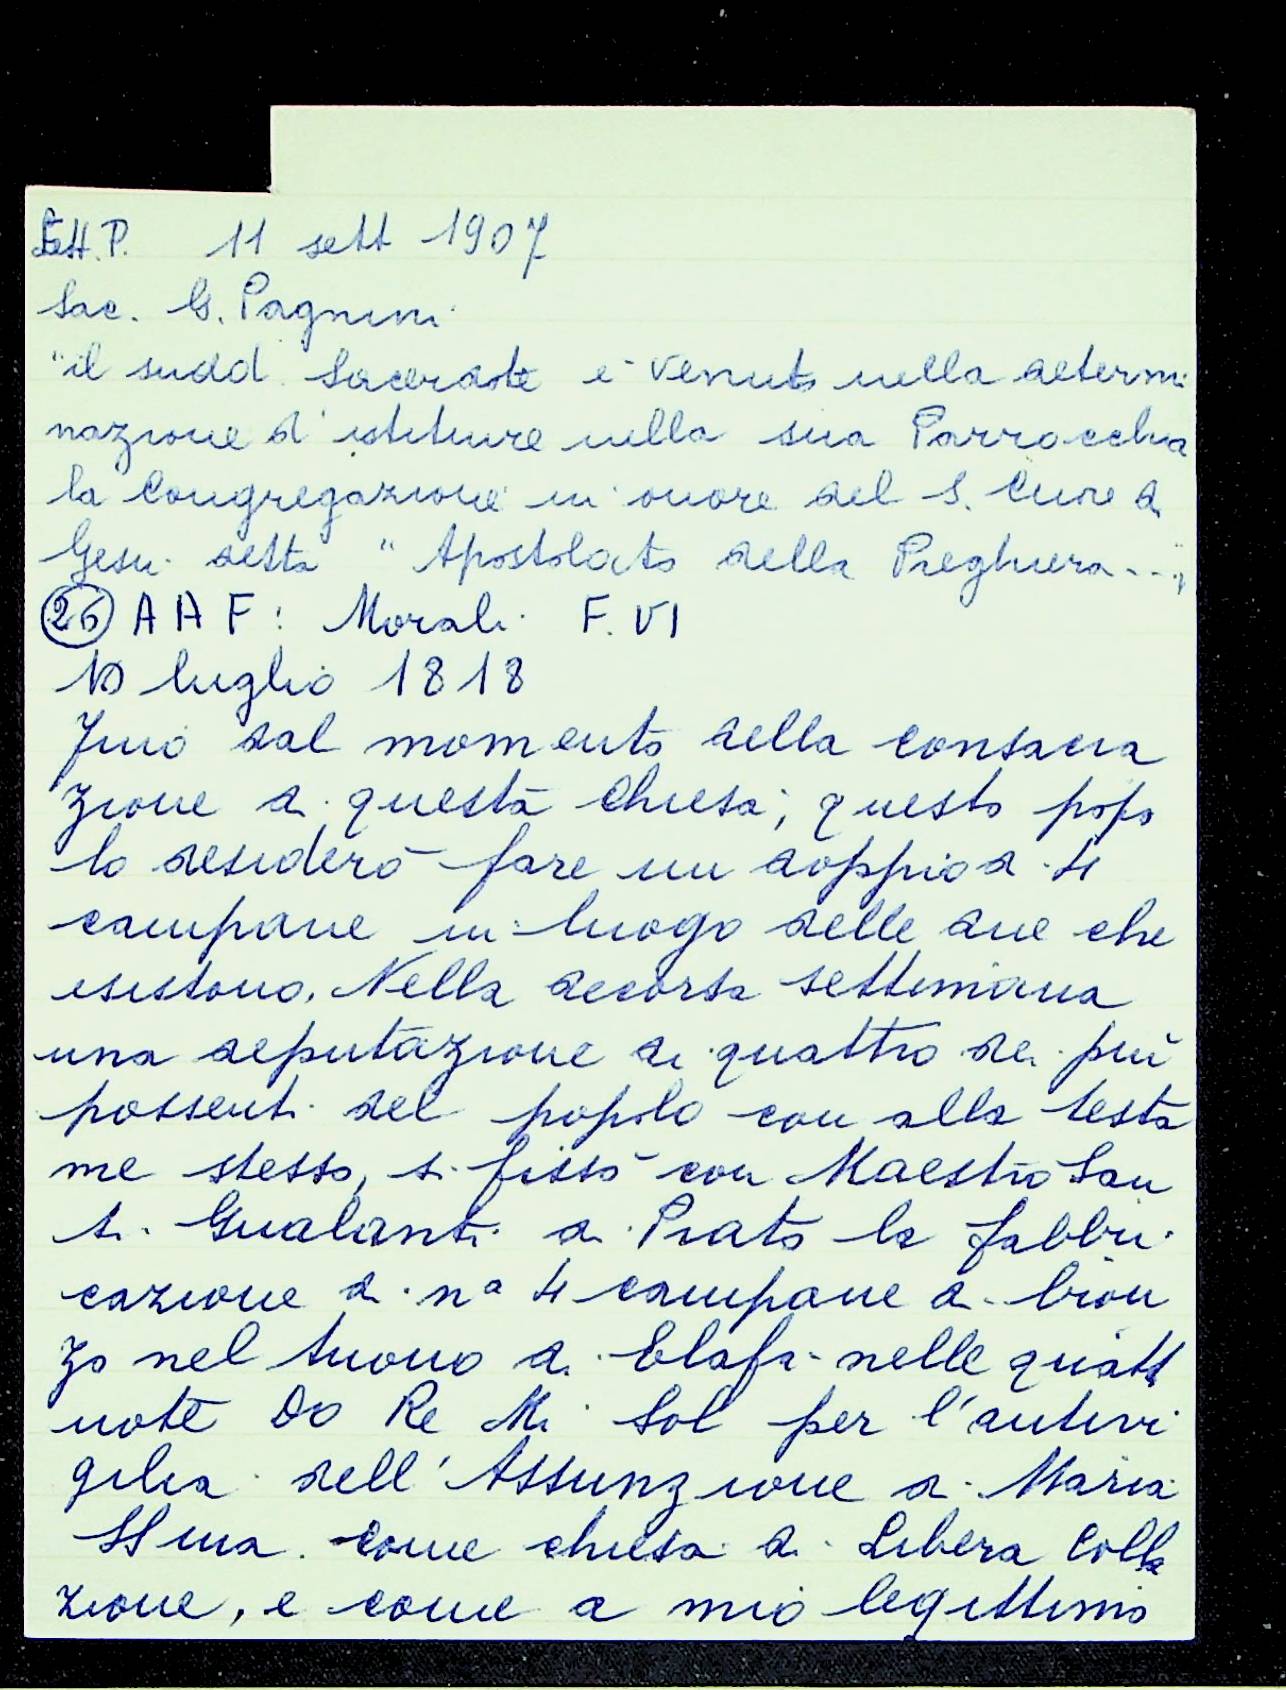 Lett. P. 11 sett 1907
Sac. G. Pagnini
"il sudd. Sacerdote è venuto nella determi
nazione d'istituire nella sua Parrocchia
la Congregazione in onore del S. Cuore di
Gesù detta "Apostolato della Preghiera...."
(26) AAF: Morali F. VI
10 luglio 1818
Fino dal momento della consacra
zione di questa Chiesa, questo popo
lo desiderò fare un doppio di 4
campane in luogo delle due che
esistono. Nella decorsa settimana
una deputazione di quattro dei più
possenti del popolo con alla testa
me stesso, si fissò con Maestro San
ti Gualanti di Prato la fabbri
cazione di n° 4 campane di bron
zo nel tuono di Elafa nelle quatt
note Do Re Mi Sol per l'antivi
gilia dell'Assunzione di Maria
SSma. Come chiesa di Libera Colla
zione, e come a mio legittimo